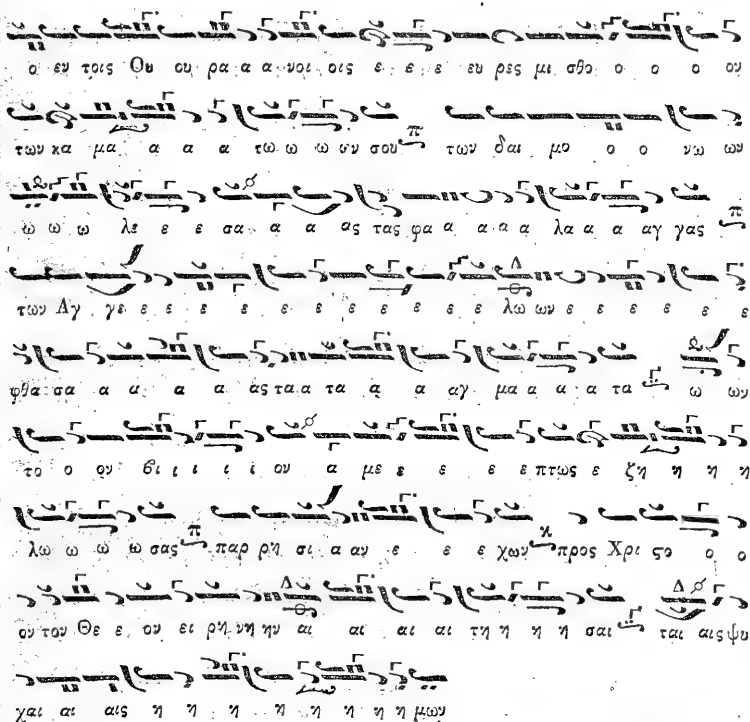 ο ευ τοις Ου ου ρα α α νοι οις ε ε ε ευ ρες μι σθο ο ο ο ον
των κα μα α α α τω ω ω ων σου π των δαι μο ο ο νω ων
ω ω ω λε ε ε σα α α ας τας φα α α α α λα α α αγ γας π
των Αγ γε ε ε ε ε ε ε ε ε ε ε ε λω ων ε ε ε ε ε ε
φθα σα α α α α ας τα α τα α α αγ μα α α α τα ω ων
το ο ον βι ι ι ι ι ον α με ε ε ε ε πτως ε ζη η η η
λω ω ω ω σας π παρ ρη σι α αν ε ε ε χων κ προς Χρι ϛο ο ο
ον τον Θε ε ον ει ρη νη ην αι αι αι αι τη η η η σαι ται αις ψυ
χαι αι αις η η η η η η η η μων